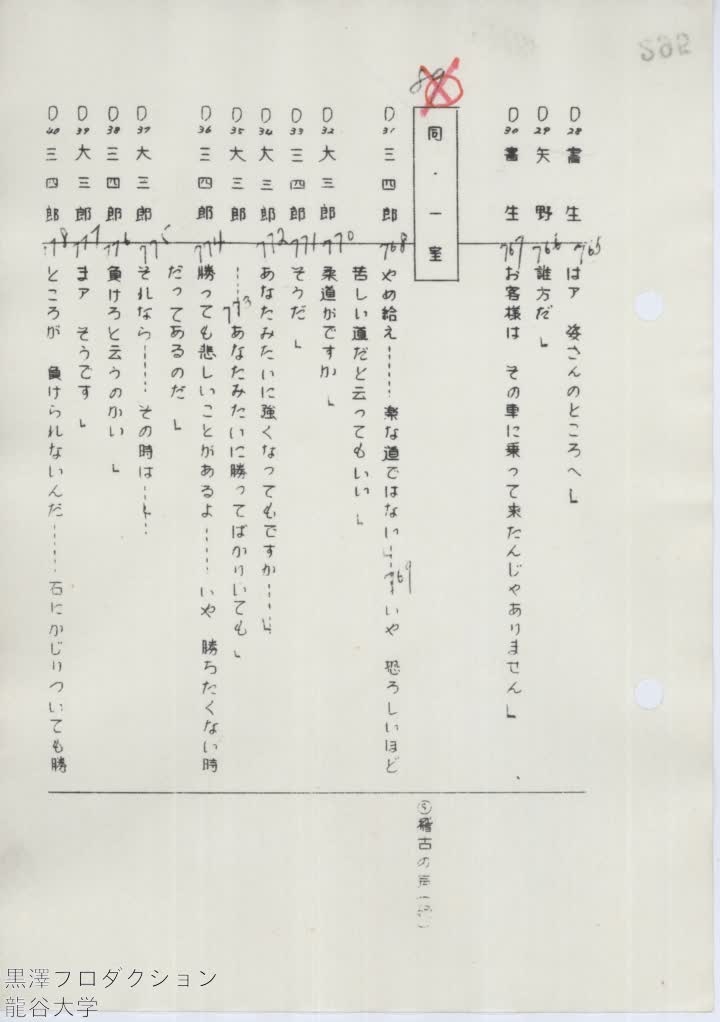 D28 書生 765 はァ 姿さんのところへ」
D29 矢野 766 誰方だ」
D30 書生 767 お客様は その車に乗って来たんじゃありません」
89
同・一室
⑤稽古の声
D31 三四郎 768 やめ給え……楽な道ではない……769いや 恐ろしいほど
苦しい道だと云ってもいい」
D32 大三郎 770 柔道がですか」
D33 三四郎 771 そうだ」
D34 大三郎 772 あなたみたいに強くなってもですか……」
D35 大三郎 773 ……あなたみたいに勝ってばかりいても」
D36 三四郎 774 勝っても悲しいことがあるよ……いや 勝ちたくない時
だってあるのだ」
D37 大三郎 775 それなら……その時は……
D38 三四郎 776 負けろと云うのかい」
D39 大三郎 777 まァ そうです」
D40 三四郎 778 ところが 負けられないんだ……石にかじりついても勝
黒澤プロダクション
龍谷大学